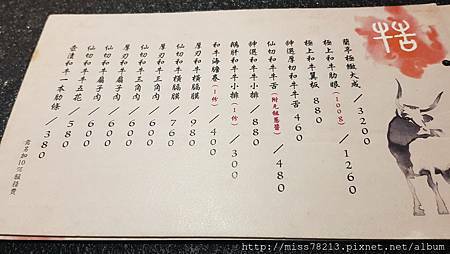 牯
蘭亭極緻大成/3200
極上和牛肋眼(100g)/1260
極上和牛翼板 880
特選厚切和牛牛舌 460
仙切和牛牛舌(附光饌蔥醬)/480
特選和牛牛小排/880
鵝肝和牛牛小排(1份)/300
和牛海膽卷(1份)/400
厚刃和牛橫膈膜 980
仙切和牛橫膈膜 760
厚刃和牛三角肉/660
仙切和牛三角肉/660
厚刃和牛扇子肉/660
仙切和牛扇子肉/660
仙切和牛牛五花/580
壺漬和牛一本肋條/380
需另加10%服務費
http://miss78213.pixnet.net/album